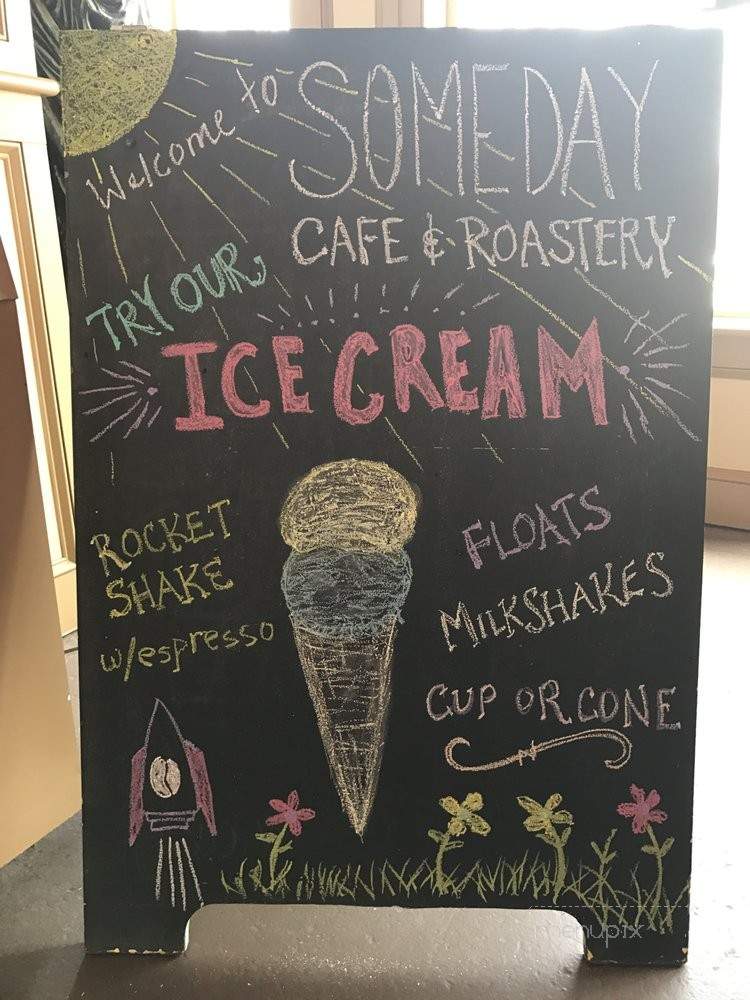 Welcome to SOMEDAY
CAFE & ROASTERY
TRY OUR
ICE CREAM
ROCKET
SHAKE
w/espresso
FLOATS
MILKSHAKES
CUP OR CONE
menupix